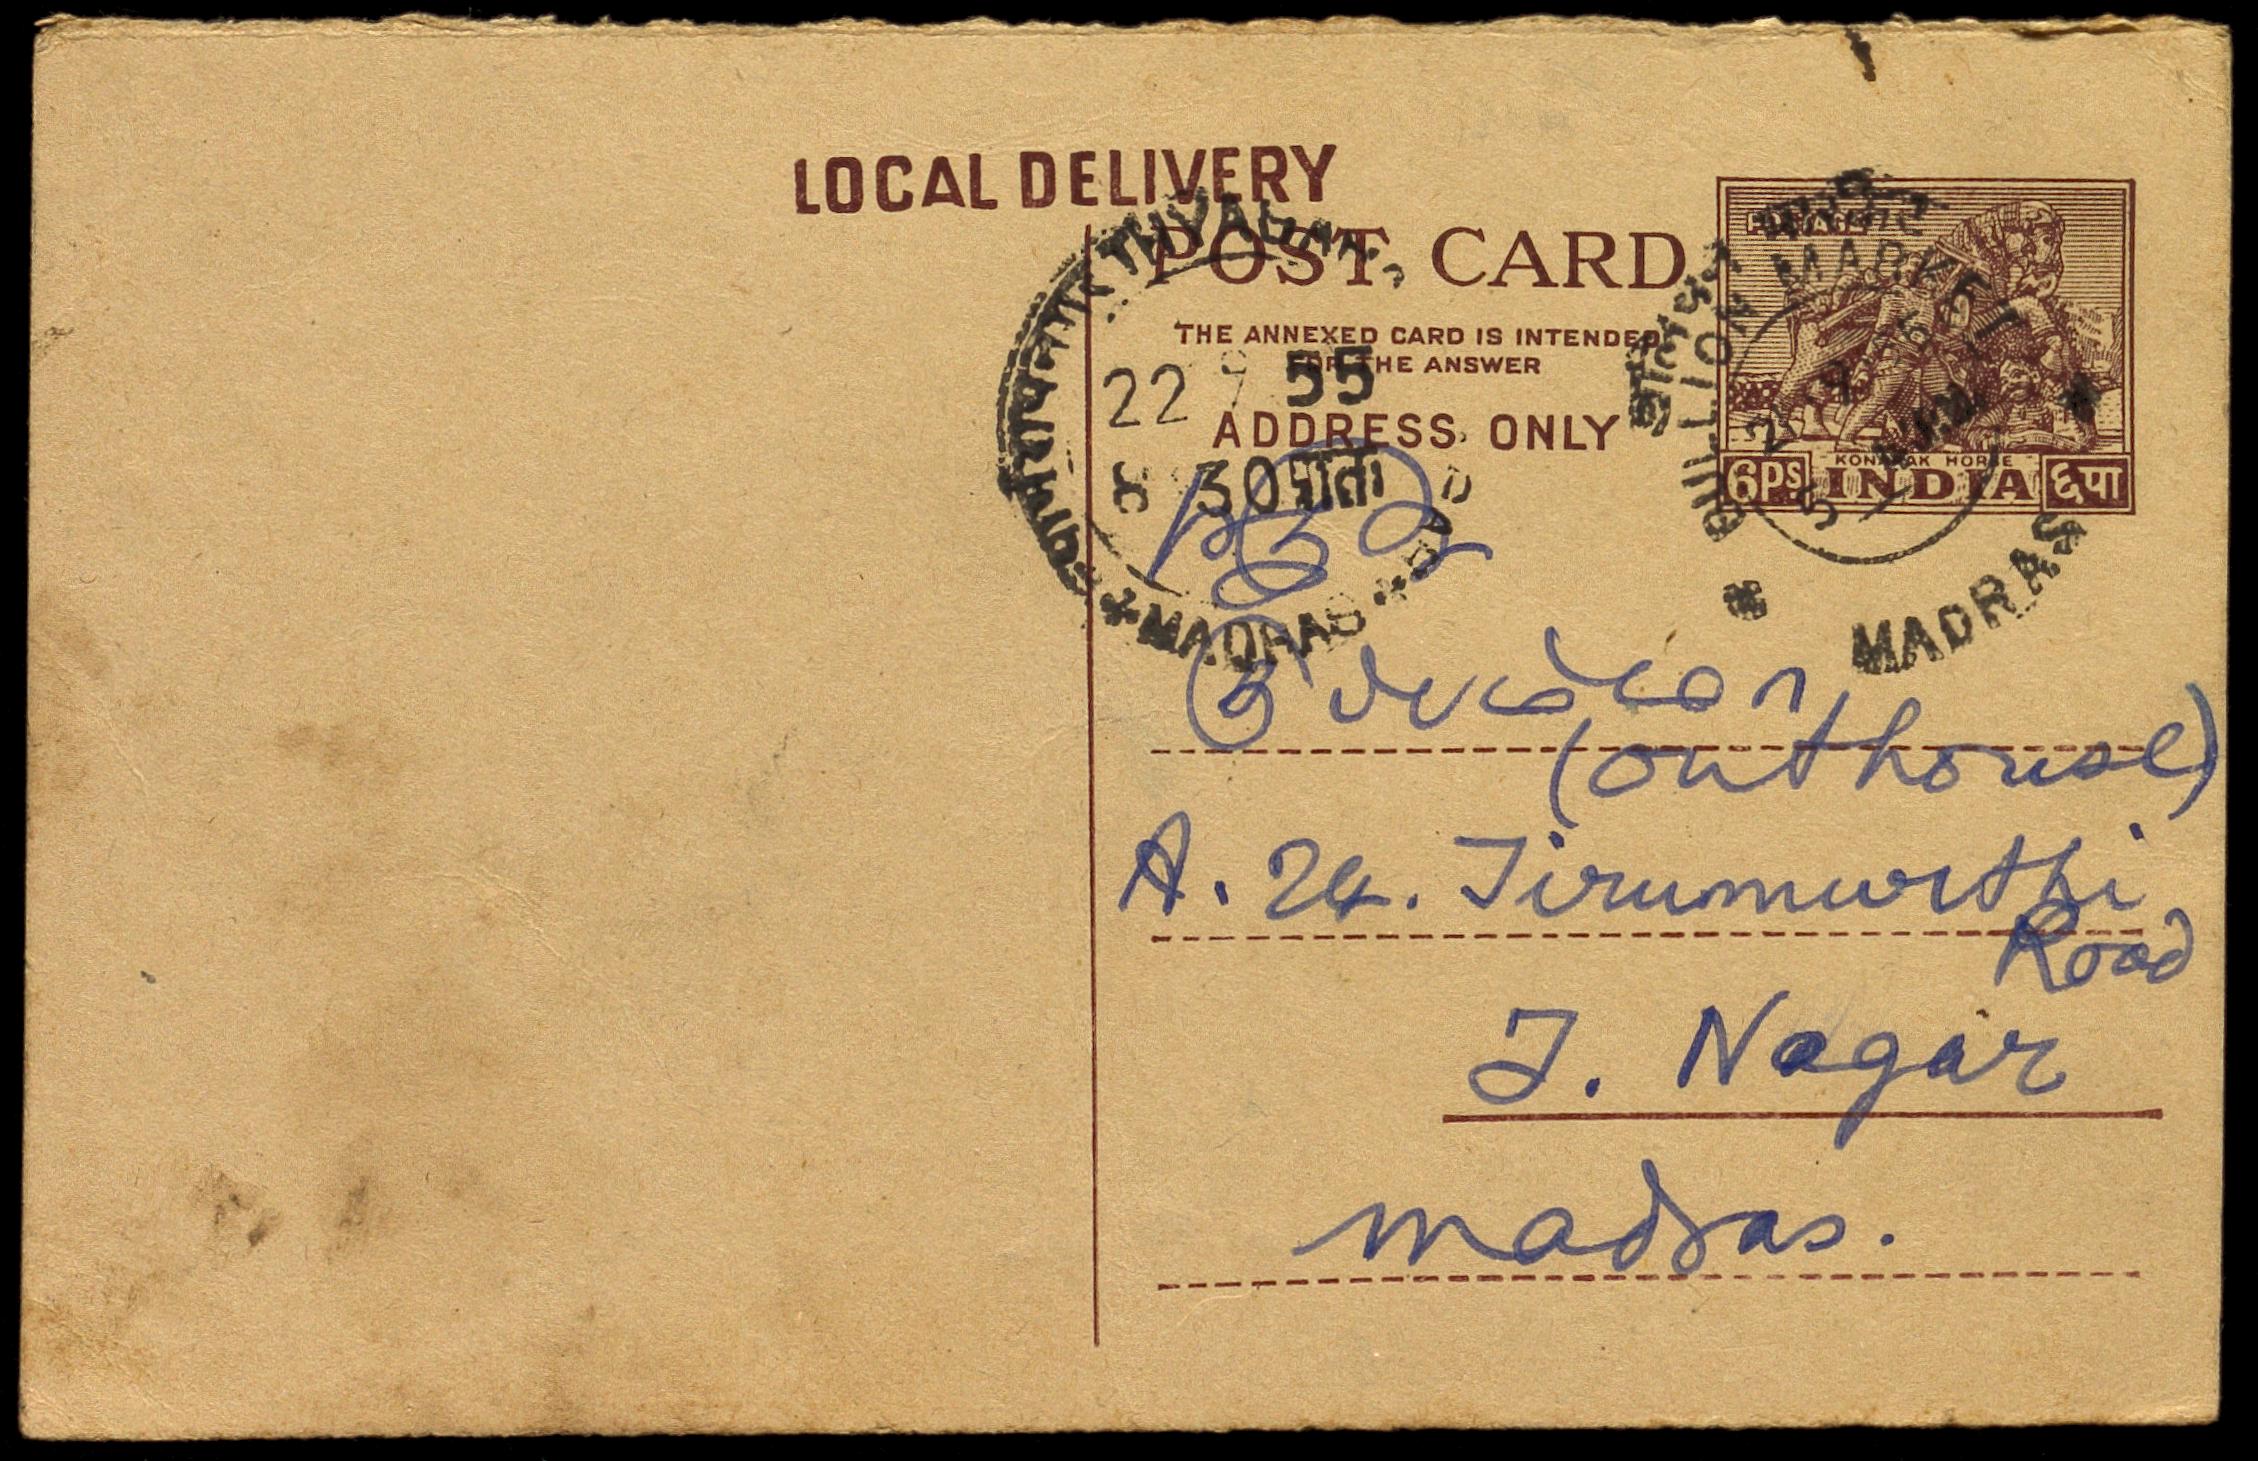 LOCAL DELIVERY
POST CARD
THE ANNEXED CARD IS INTENDED
FOR THE ANSWER
ADDRESS ONLY
POSTAGE
KONARAK HORSE
6PS INDIA ६पा
BULLION MARKET
MADRAS
22 9 55
8 30
MADRAS
(outhouse)
A. 24. Tirumurthi
Road
T. Nagar
madras.